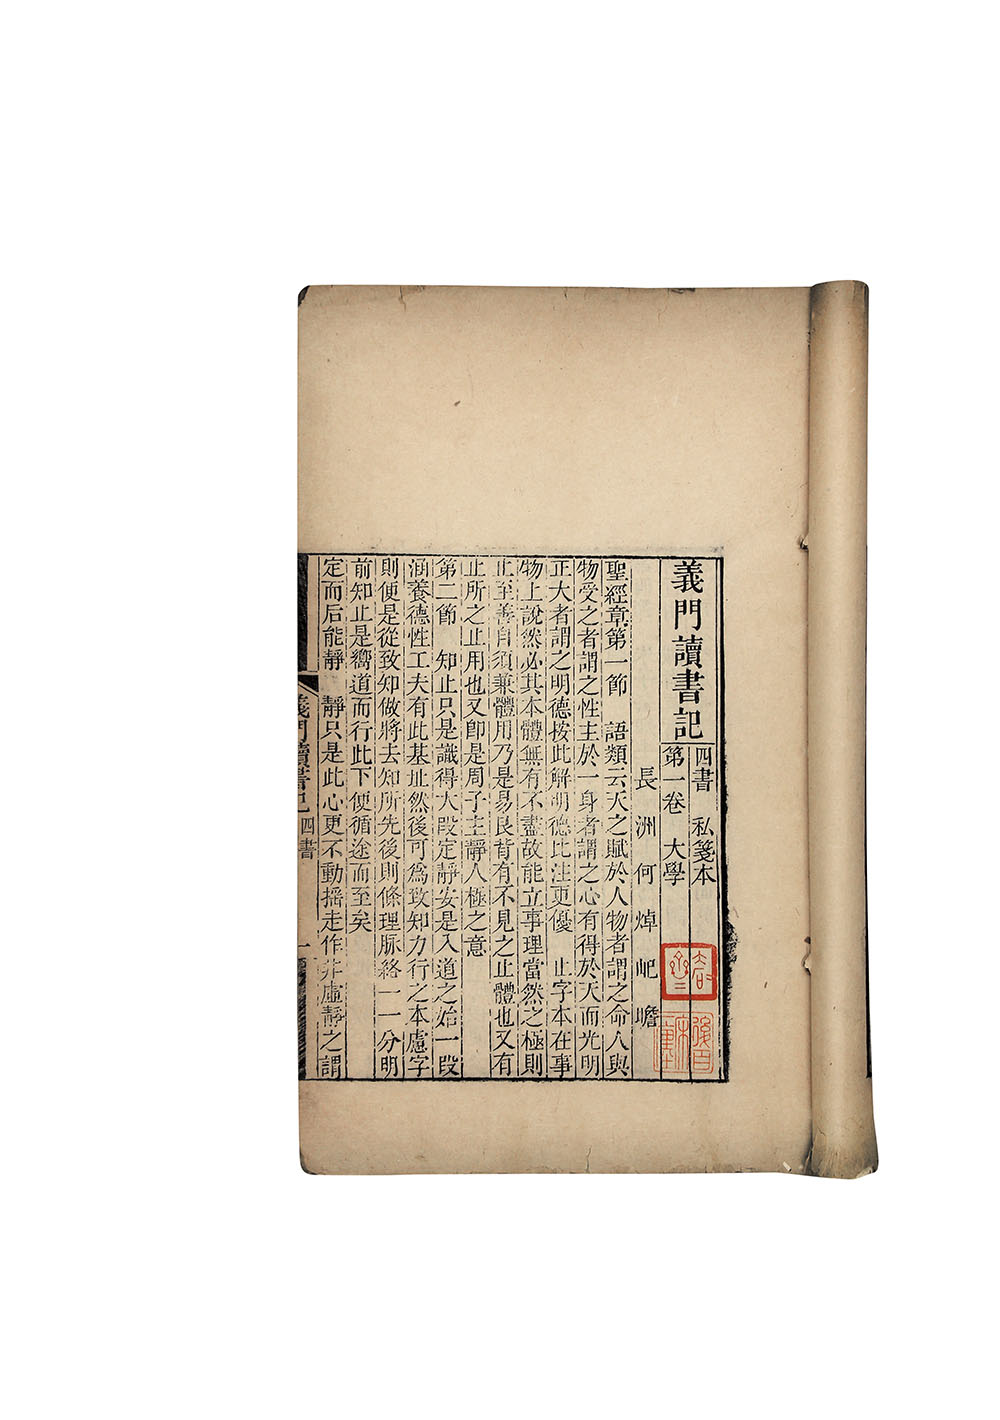 義門讀書記
四書　私箋本
第一卷　大學
長洲何焯屺瞻
聖經章第一節　語類云天之賦於人物者謂之命人與
物受之者謂之性主於一身者謂之心有得於天而光明
正大者謂之明德按此解明德比注更優　止字本在事
物上說然必其本體無有不盡故能立事理當然之極則
止至善自須兼體用乃是易艮背有不見之止體也又有
止所之止用也又卽是周子主靜人極之意
第二節　知止只是識得大段定靜安是入道之始一段
涵養德性工夫有此基址然後可爲致知力行之本慮字
則便是從致知做將去知所先後則條理脈絡一一分明
前知止是嚮道而行此下便循途而至矣
定而后能靜　靜只是此心更不動搖走作非虛靜之謂
義門讀書記 四書　一